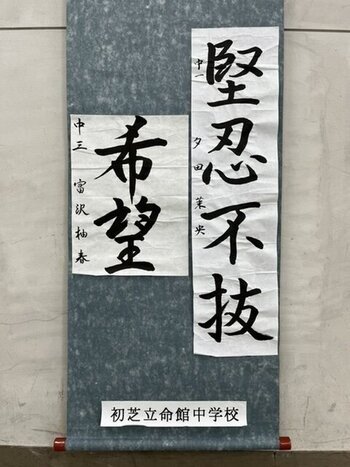 堅忍不抜
中一 夕田茉央
希望
中三 富沢柚春
初芝立命館中学校